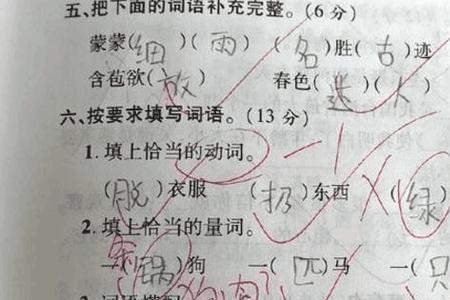 五、把下面的词语补充完整。(6 分)
蒙蒙(细)(雨) (名)胜(古)迹
含苞欲(放) 春色(迷)(人)
六、按要求填写词语。(13 分)
1. 填上恰当的动词。
(脱)衣服 (扔)东西 (绿)
2. 填上恰当的量词。
一(锅)狗 一(匹)马 一(只)